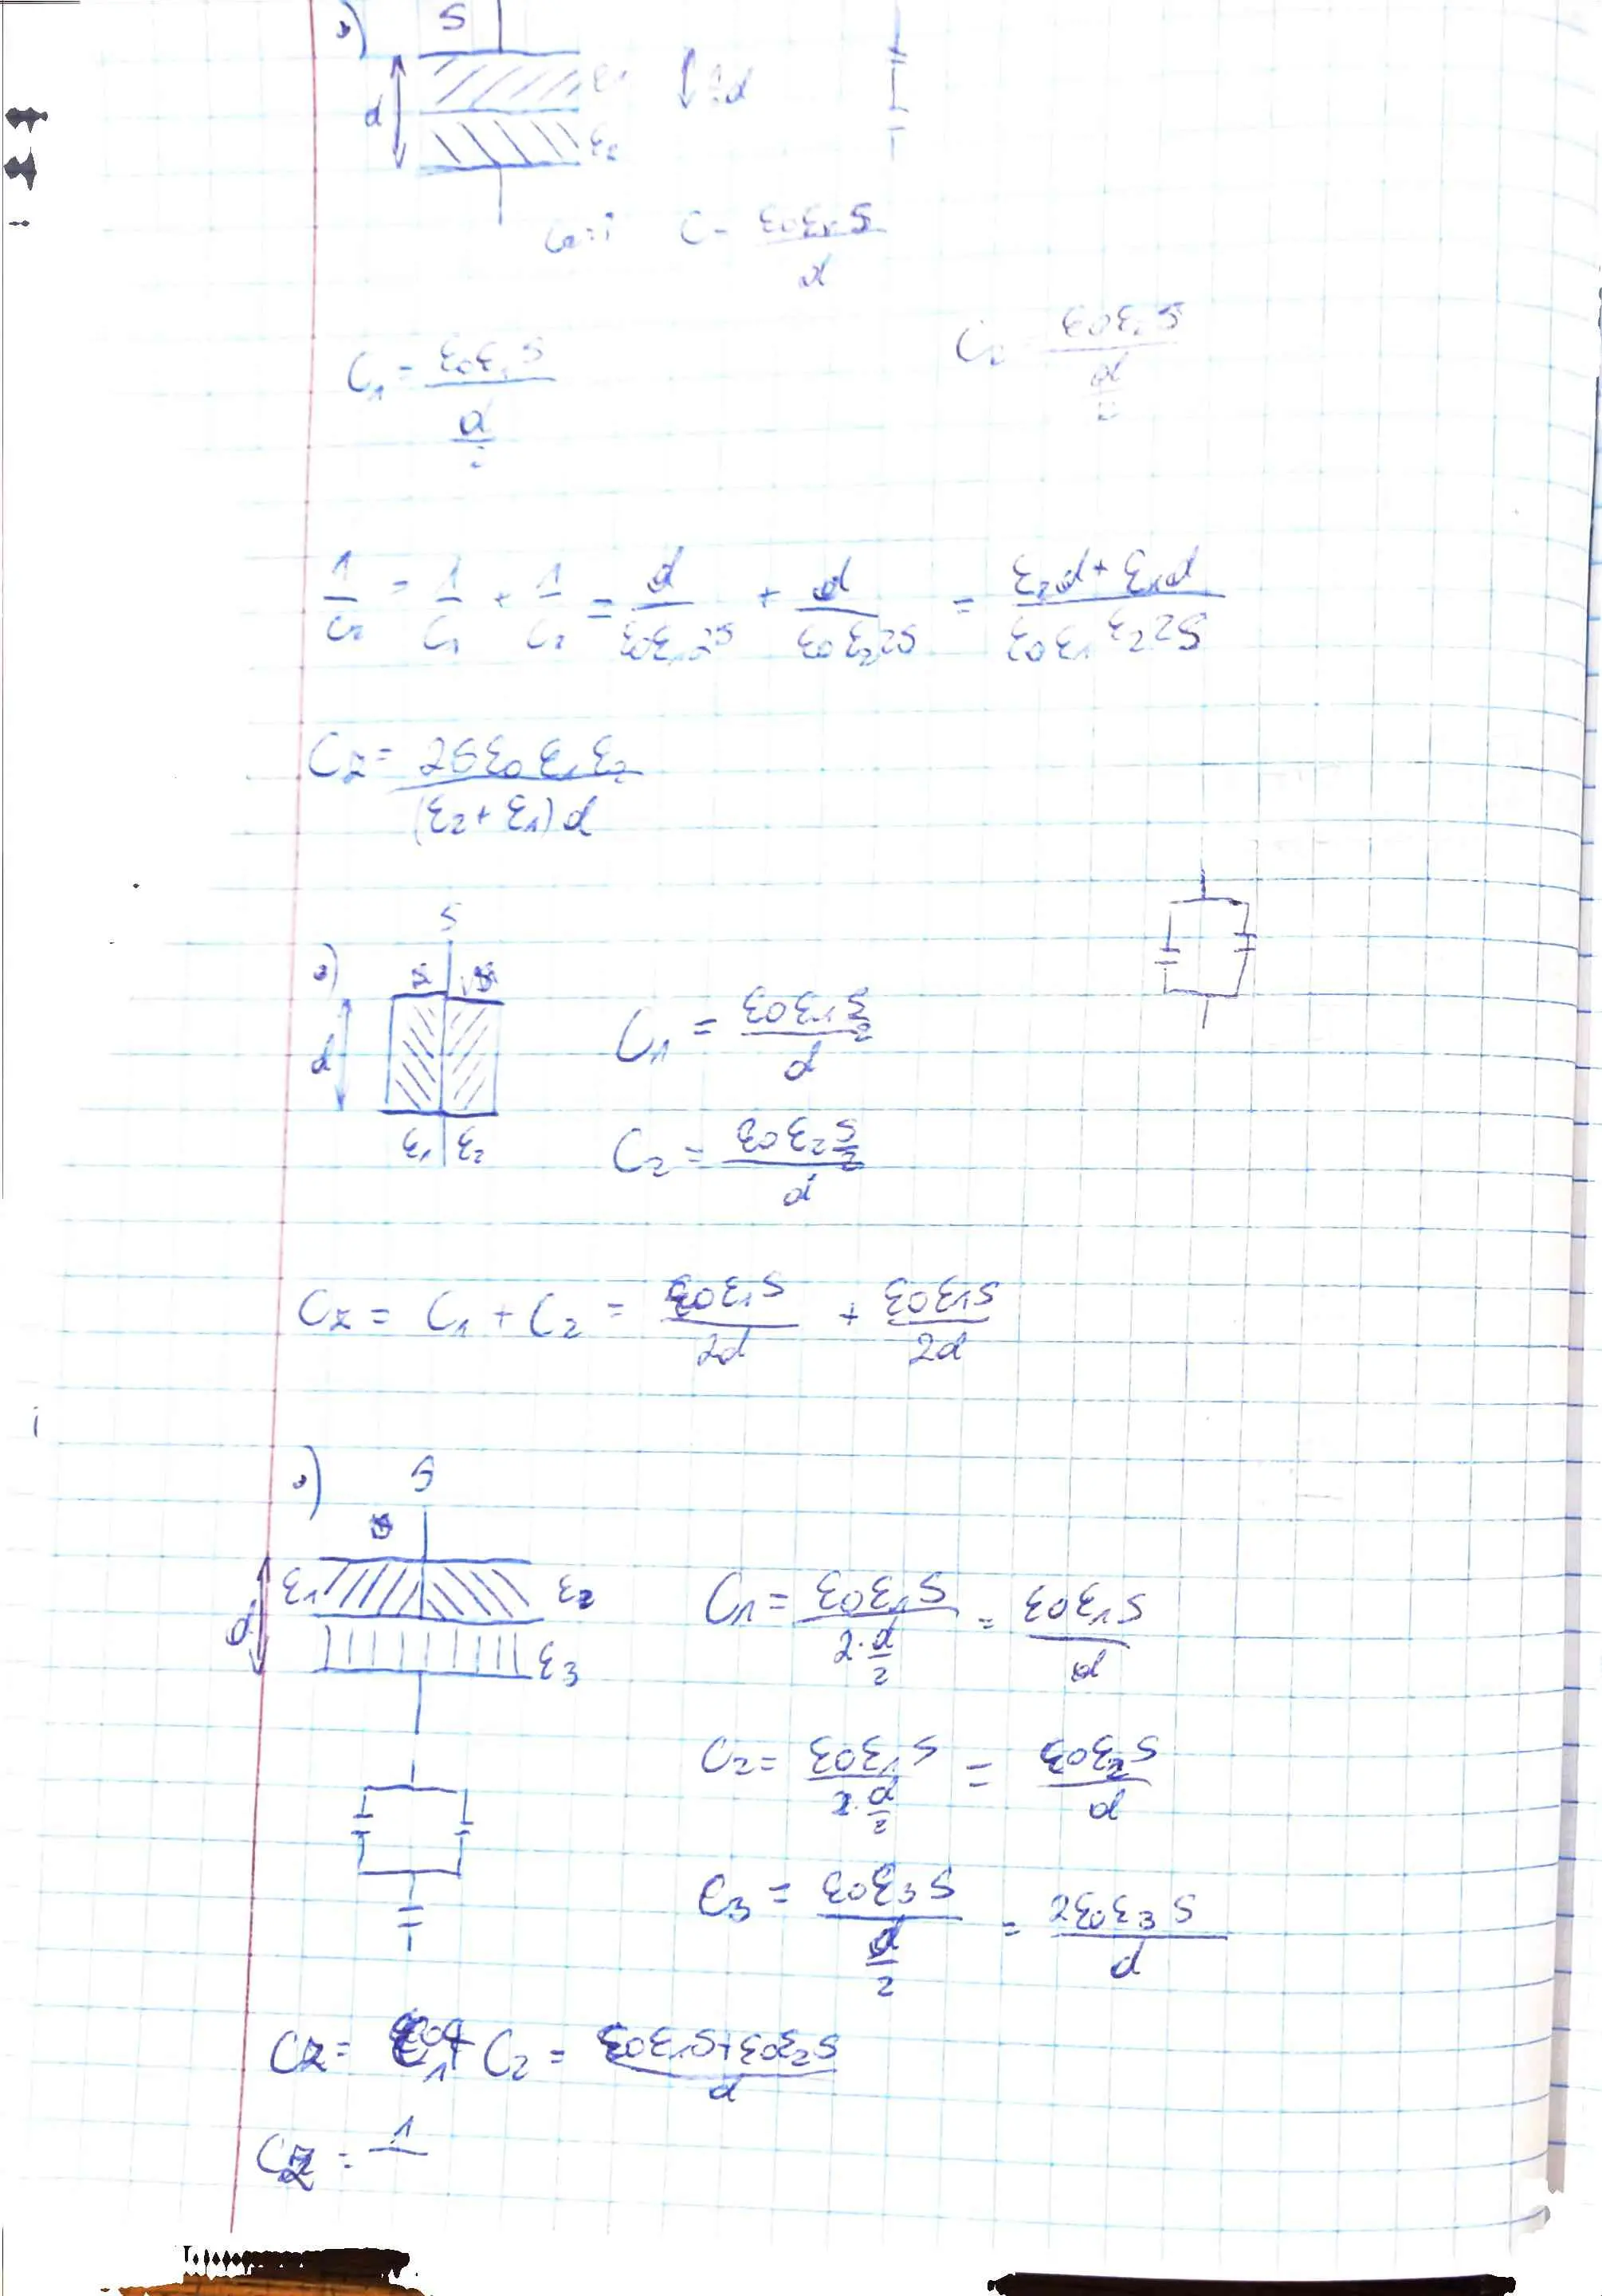 S
d
ε2
C = ε0εrS / d
C1 = ε0ε1S / d
C2 = ε0ε2S / (d/2)
1/Cz = 1/C1 + 1/C2 = d/(ε0ε12S) + d/(ε0ε22S) = (ε2d + ε1d)/(ε0ε1ε22S)
Cz = 2Sε0ε1ε2 / (ε2 + ε1)d
S
d
ε1 ε2
C1 = ε0ε1 S/2 / d
C2 = ε0ε2 S/2 / d
Cz = C1 + C2 = ε0ε1S/2d + ε0ε1S/2d
S
d ε1 ε2
ε3
C1 = ε0ε1S / (2·d/2) = ε0ε1S / d
C2 = ε0ε1S / (2·d/2) = ε0ε2S / d
C3 = ε0ε3S / (d/2) = 2ε0ε3S / d
Cz = C1 + C2 = (ε0ε1S + ε0ε2S) / d
Cz = 1/